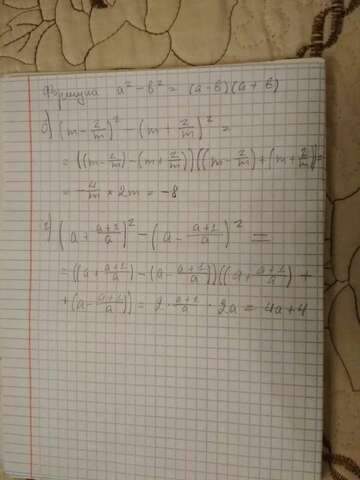 Формула a² - b² = (a-b)(a+b)
б) (m - 2/m)² - (m + 2/m)² =
= ((m - 2/m) - (m + 2/m))((m - 2/m) + (m + 2/m)) =
= -4/m × 2m = -8
г) (a + a+1/a)² - (a - a+1/a)² =
= ((a + a+1/a) - (a - a+1/a))((a + a+1/a) +
+ (a - a+1/a)) = 2 · a+1/a · 2a = 4a+4